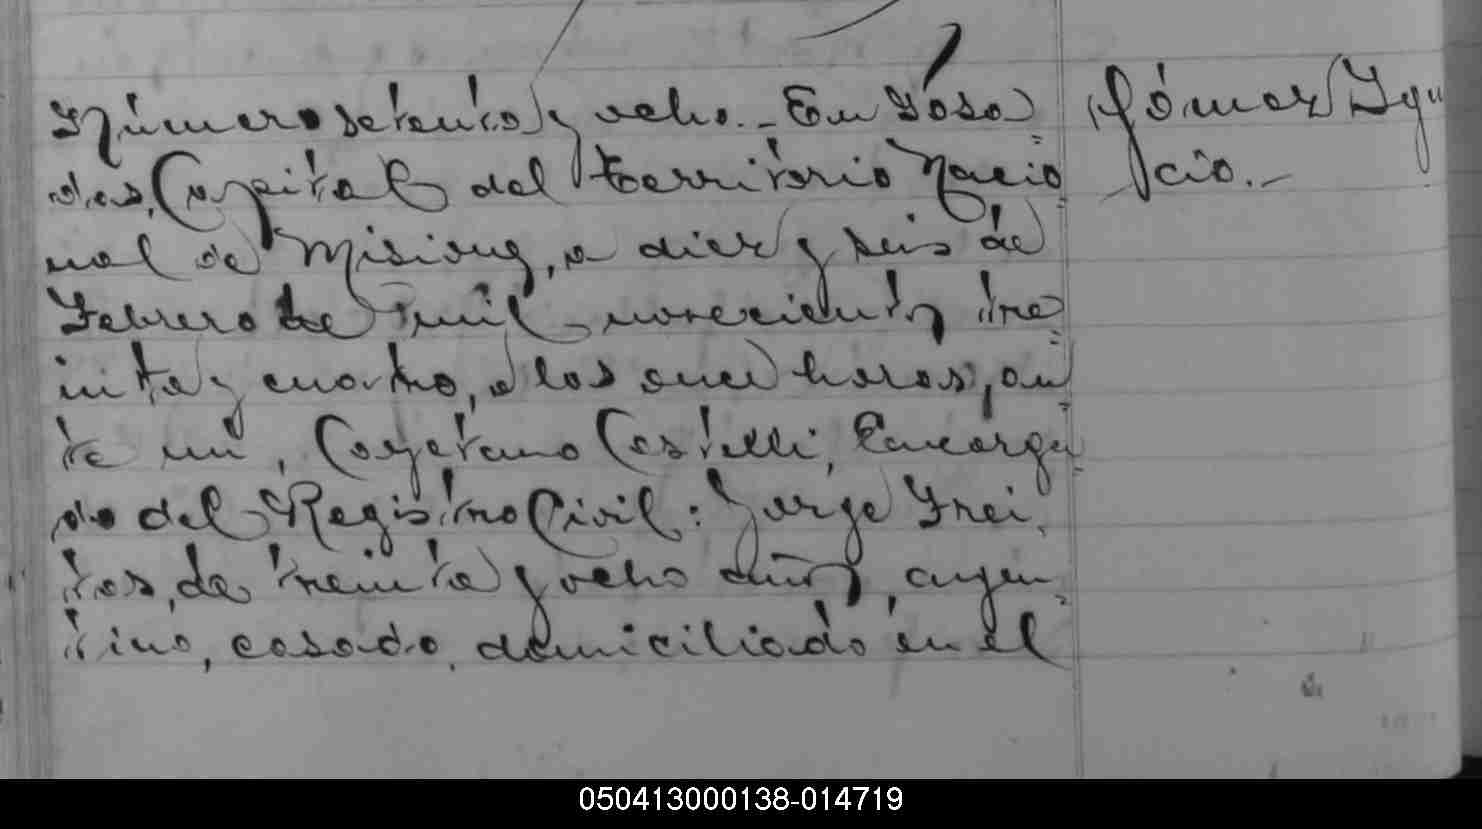 Número setenta y ocho.- En Posa=
das, Capital del territorio Nacio=
nal de Misiones, a diez y seis de
Febrero de mil novecientos tre=
inta y cuatro, a las once horas, an=
te mi, Cayetano Castelli, Encarga=
do del Registro Civil: Jorge Frei-
tas, de treinta y ocho años, argen=
tino, casado, domiciliado en el
Gómez Ig"
cio.-
050413000138-014719